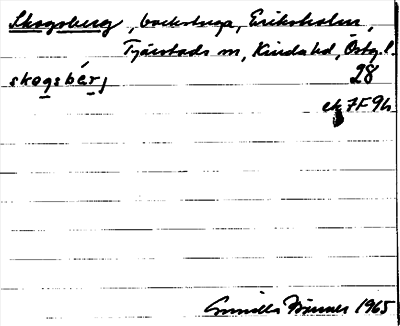 Skogsberg, backstuga, Eriksholm,
Tjärstads sn, Kinda hd, Östg.l.
skogsbärj 28
ek 7F9h
Gunilla 1965